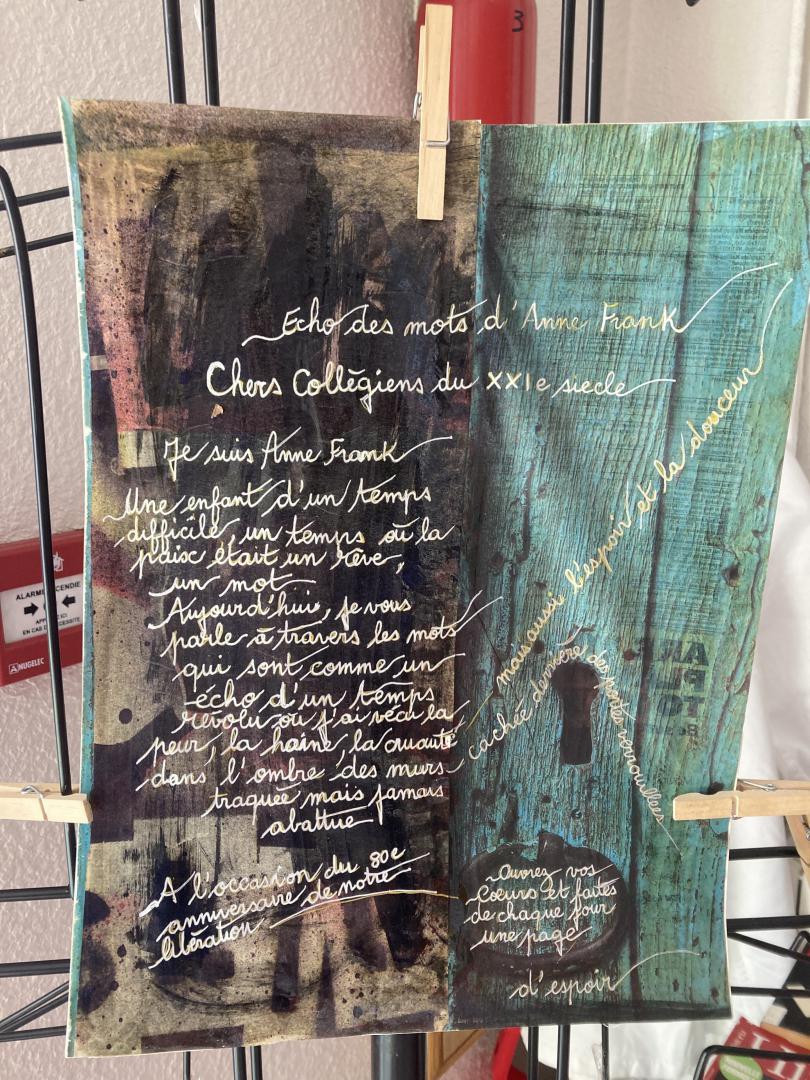 3
Echo des mots d'Anne Frank
Chers Collègiens du XXIe siecle
Je suis Anne Frank
Une enfant d'un temps
difficile, un temps où la
paix était un rêve,
un mot
Aujourd'hui, je vous
parle à travers les mots
qui sont comme un
écho d'un temps
révolu où j'ai vécu la
peur, la haine, la cruauté
mais aussi l'espoir et la douceur
dans l'ombre des murs
cachée derrière des portes verrouillées
traquée mais jamais
abattue
A l'occasion du 80e
anniversaire de notre
libération
Ouvrez vos
Cœurs et faites
de chaque jour
une page
d'espoir
ALARME INCENDIE
ICI
EN CAS DE NÉCESSITÉ
NUGELEC